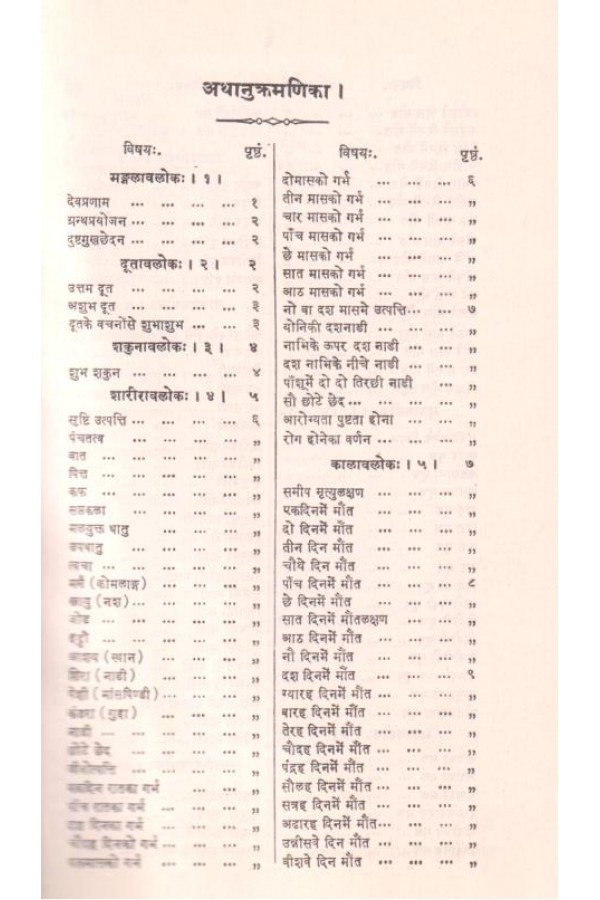 अथानुक्रमणिका।
विषयः. पृष्ठं.
मङ्गलावलोकः । १ ।
देवप्रणाम ... ... ... ... १
ग्रन्थप्रयोजन ... ... ... ... २
दुष्टमुखछेदन ... ... ... ... २
दूतावलोकः । २ । २
उत्तम दूत ... ... ... ... २
अशुभ दूत ... ... ... ... ३
दूतके वचनोंसे शुभाशुभ ... ... ३
शकुनावलोकः । ३ । ४
शुभ शकुन ... ... ... ... ४
शारीरावलोकः । ४ । ५
सृष्टि उत्पत्ति ... ... ... ... ६
पंचतत्व ... ... ... ... „
वात ... ... ... ... „
पित्त ... ... ... ... „
कफ ... ... ... ... „
सप्तकला ... ... ... ... „
मलयुक्त धातु ... ... ... „
उपधातु ... ... ... ... „
त्वचा ... ... ... ... „
मर्म (कोमळाङ्ग) ... ... ... „
स्नायु (नश) ... ... ... ... „
... ... ... ... „
... ... ... ... „
आशय (स्थान) ... ... ... „
शिरा (नाडी) ... ... ... „
पेशी (मांसपिण्डी) ... ... ... „
कंडरा (गुद्दा) ... ... ... „
नाडी ... ... ... ... „
छोटे छेद ... ... ... ... „
... ... ... „
रातका गर्भ ... ... ... „
पाँच रातका गर्भ ... ... ... „
दिनका गर्भ ... ... ... „
दिनको गर्भ ... ... ... „
गर्भ ... ... ... „
विषयः. पृष्ठं.
दोमासको गर्भ ... ... ... ६
तीन मासको गर्भ ... ... ... „
चार मासको गर्भ ... ... ... „
पाँच मासको गर्भ ... ... ... „
छे मासको गर्भ ... ... ... „
सात मासको गर्भ ... ... ... „
आठ मासको गर्भ ... ... ... „
नो वा दश मासमे उत्पत्ति... ... ७
योनिकी दशनाडी ... ... ... „
नाभिके ऊपर दश नाडी ... ... „
दश नाभिके नीचे नाडी ... ... „
पाँशूमें दो दो तिरछी नाडी ... „
सौ छोटे छेद ... ... ... ... „
आरोग्यता पुष्टता होना ... ... „
रोग होनेका वर्णन ... ... ... „
कालावलोकः । ५ । ७
समीप मृत्युळक्षण ... ... ... „
एकदिनमें मौंत ... ... ... „
दो दिनमें मौंत ... ... ... „
तीन दिनमें मौंत ... ... ... „
चौथे दिनमें मौंत ... ... ... „
पाँच दिनमें मौंत ... ... ... ८
छे दिनमें मौंत ... ... ... „
सात दिनमें मौंतळक्षण ... ... „
आठ दिनमें मौंत ... ... ... „
नौ दिनमें मौंत ... ... ... „
दश दिनमें मौंत ... ... ... ९
ग्यारह दिनमें मौंत ... ... ... „
बारह दिनमें मौंत ... ... ... „
तेरह दिनमें मौंत ... ... ... „
चौदह दिनमें मौंत ... ... ... „
पंद्रह दिनमें मौंत ... ... ... „
सौळह दिनमें मौंत ... ... ... „
सत्रह दिनमें मौंत ... ... ... „
अढारह दिनमें मौंत... ... ... „
उन्नीसवे दिन मौंत ... ... ... „
वीशवे दिन मौंत ... ... ... „